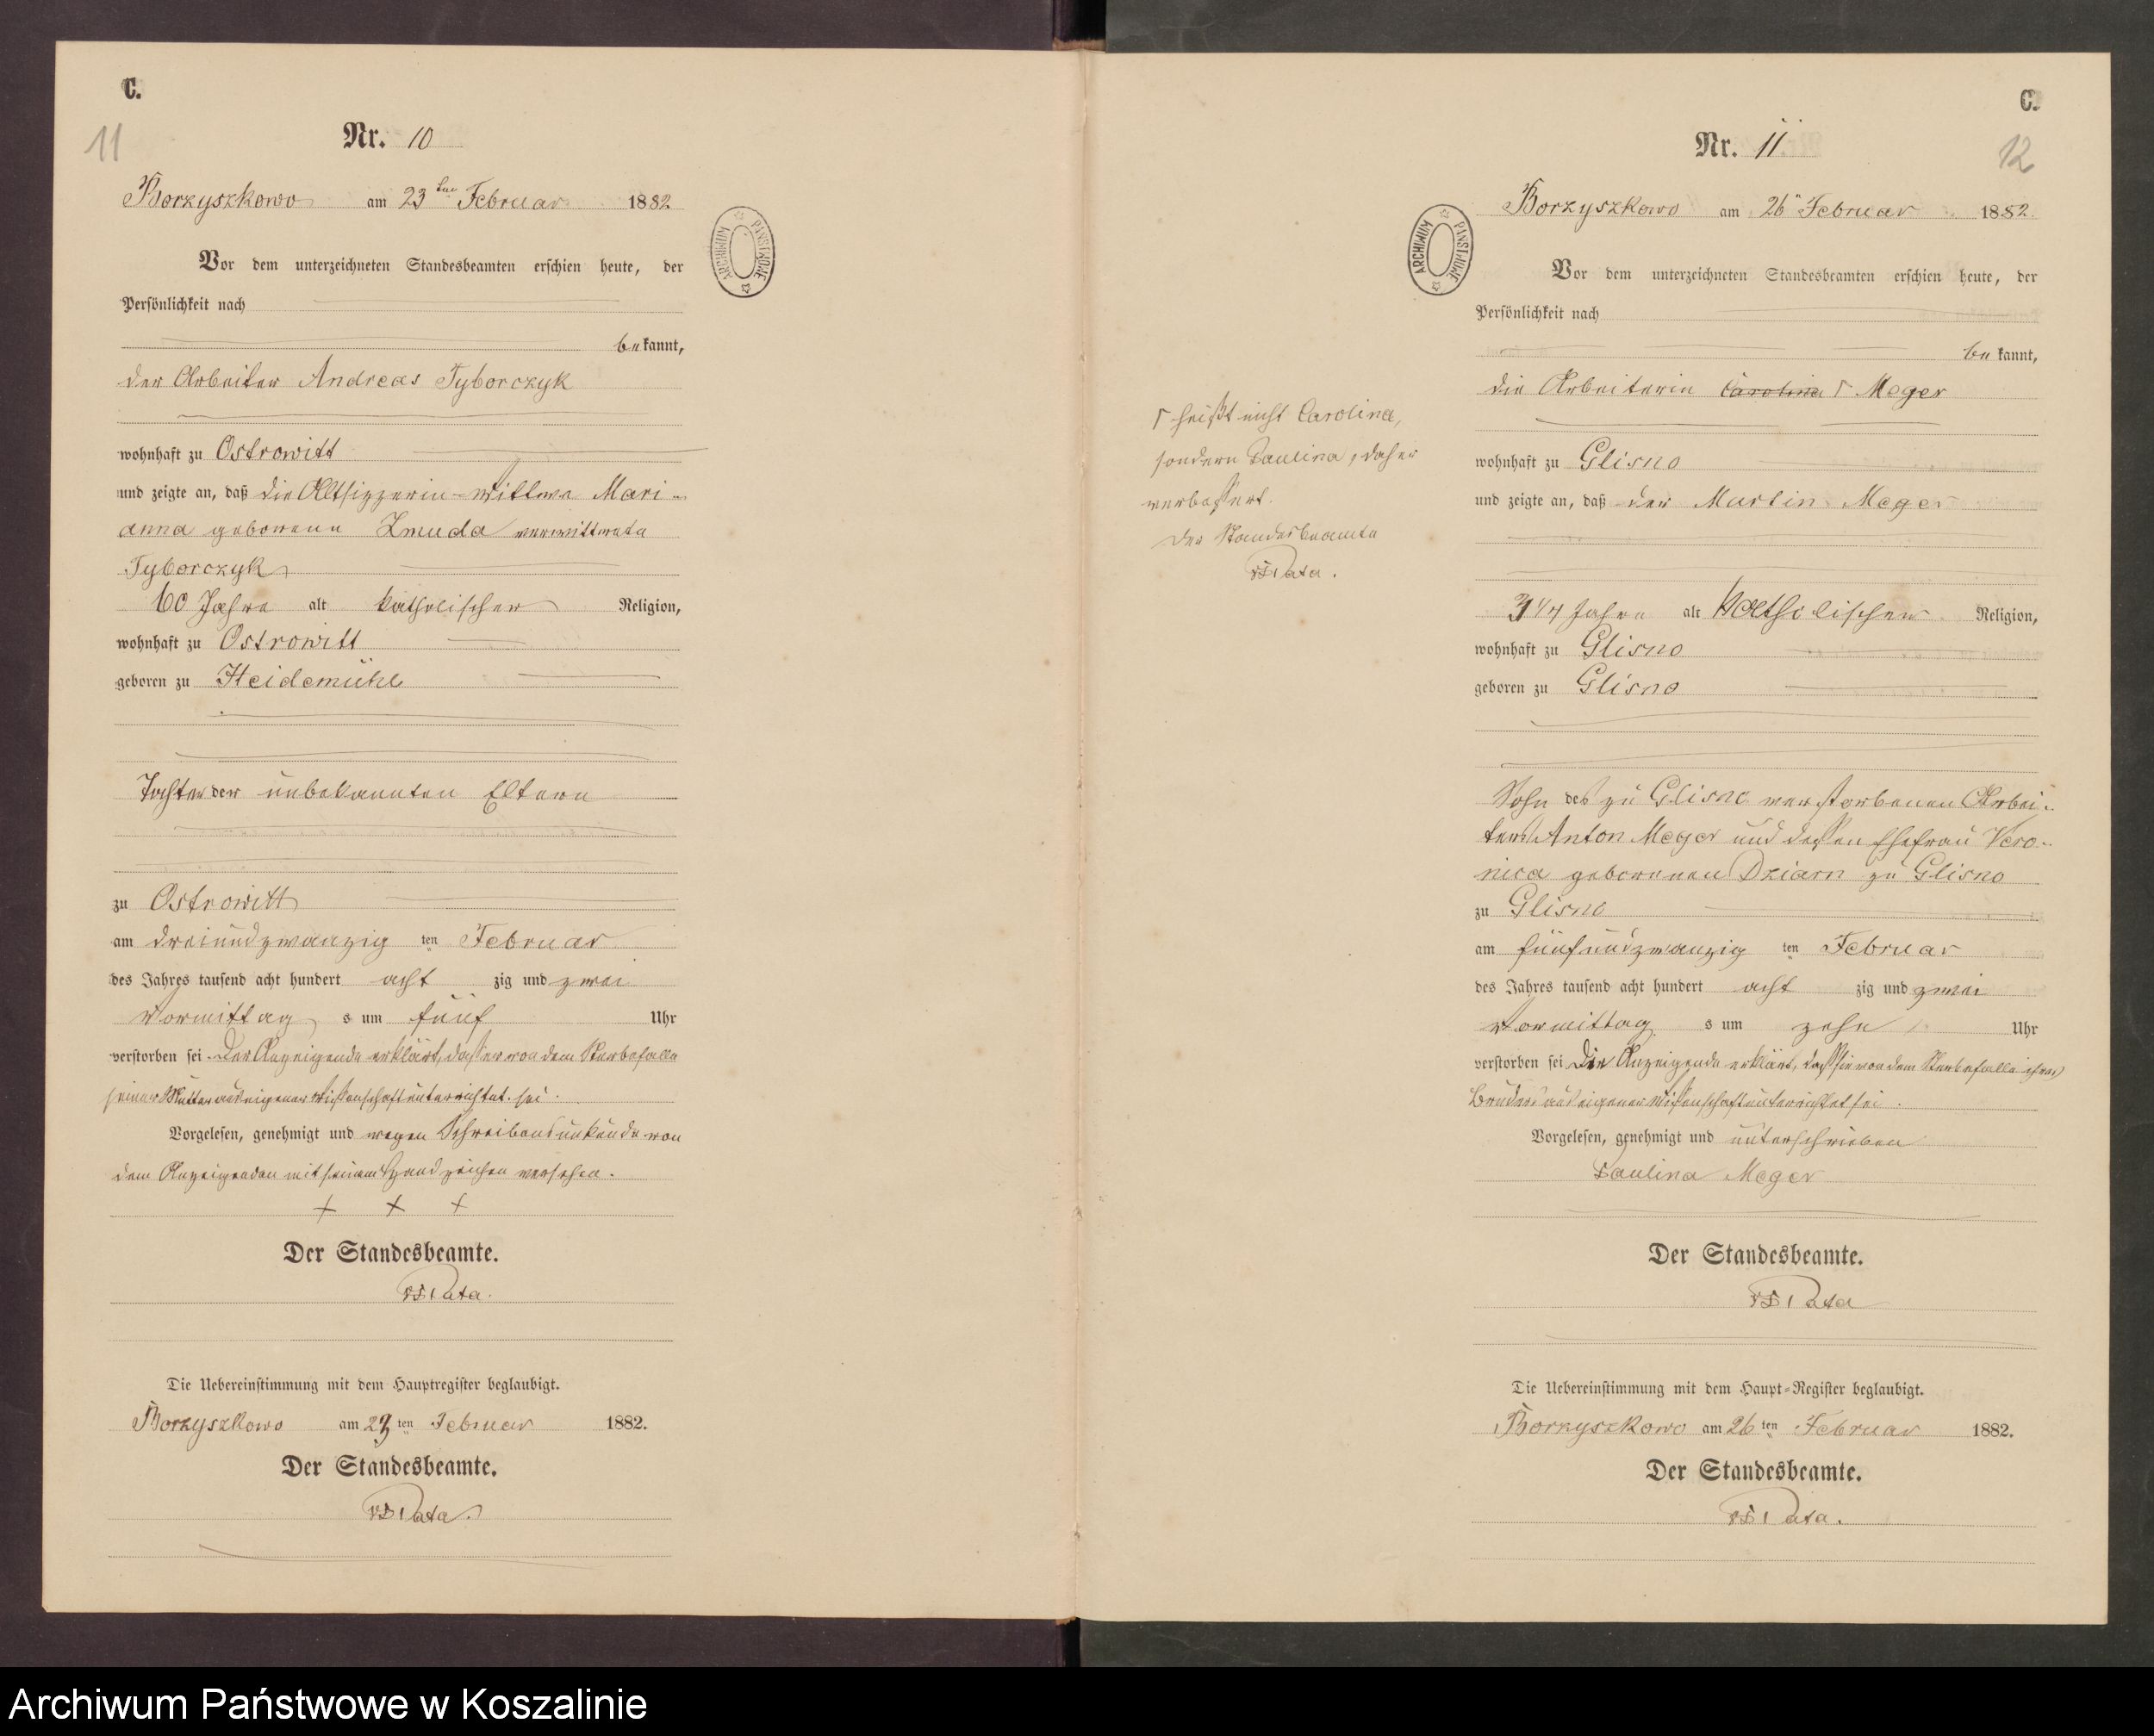 C.
11
Nr. 10
Borzyszkowo am 23ten Februar 1882
Vor dem unterzeichneten Standesbeamten erschien heute, der
Persönlichkeit nach
be kannt,
der Arbeiter Andreas Tyborczyk
wohnhaft zu Ostrowitt
und zeigte an, daß die Altsitzerin-Wittwe Mari-
anna geborene Zmuda verwittwete
Tyborczyk
60 Jahre alt katholischer Religion,
wohnhaft zu Ostrowitt
geboren zu Heidemühle
Tochter der unbekannten Eltern
zu Ostrowitt
am dreiundzwanzig ten Februar
des Jahres tausend acht hundert acht zig und zwei
Vormittag s um fünf Uhr
verstorben sei. Der Anzeigende erklärt, dass er von dem Sterbefalle
seiner Mutter aus eigener Wissenschaft unterrichtet sei.
Vorgelesen, genehmigt und wegen Schreibensunkunde von
dem Anzeigenden mit seinem Handzeichen versehen.
+ + +
Der Standesbeamte.
Pata.
Die Uebereinstimmung mit dem Hauptregister beglaubigt.
Borzyszkowo am 23 ten Februar 1882.
Der Standesbeamte.
Pata.
ARCHIWUM PAŃSTWOWE
C.
12
Nr. 11.
Borzyszkowo am 26 Februar 1882.
Vor dem unterzeichneten Standesbeamten erschien heute, der
Persönlichkeit nach
be kannt,
die Arbeiterin Carolina Γ Meger
wohnhaft zu Glisno
und zeigte an, daß der Martin Meger
3 1/4 Jahre alt katholischer Religion,
wohnhaft zu Glisno
geboren zu Glisno
Sohn des zu Glisno verstorbenen Arbei-
ters Anton Meger und dessen Ehefrau Vero-
nica geborenen Dziarn zu Glisno
zu Glisno
am fünfundzwanzig ten Februar
des Jahres tausend acht hundert acht zig und zwei
Vormittag s um zehn Uhr
verstorben sei Die Anzeigende erklärt, dass sie von dem Sterbefalle ihres
Bruders aus eigener Wissenschaft unterrichtet sei.
Vorgelesen, genehmigt und unterschrieben
Paulina Meger
Der Standesbeamte.
Pata
Die Uebereinstimmung mit dem Haupt-Register beglaubigt.
Borzyszkowo am 26 ten Februar 1882.
Der Standesbeamte.
Pata.
ARCHIWUM PAŃSTWOWE
Γ heißt nicht Carolina,
sondern Paulina, daher
verbessert.
Der Standesbeamte
Pata.
Archiwum Państwowe w Koszalinie